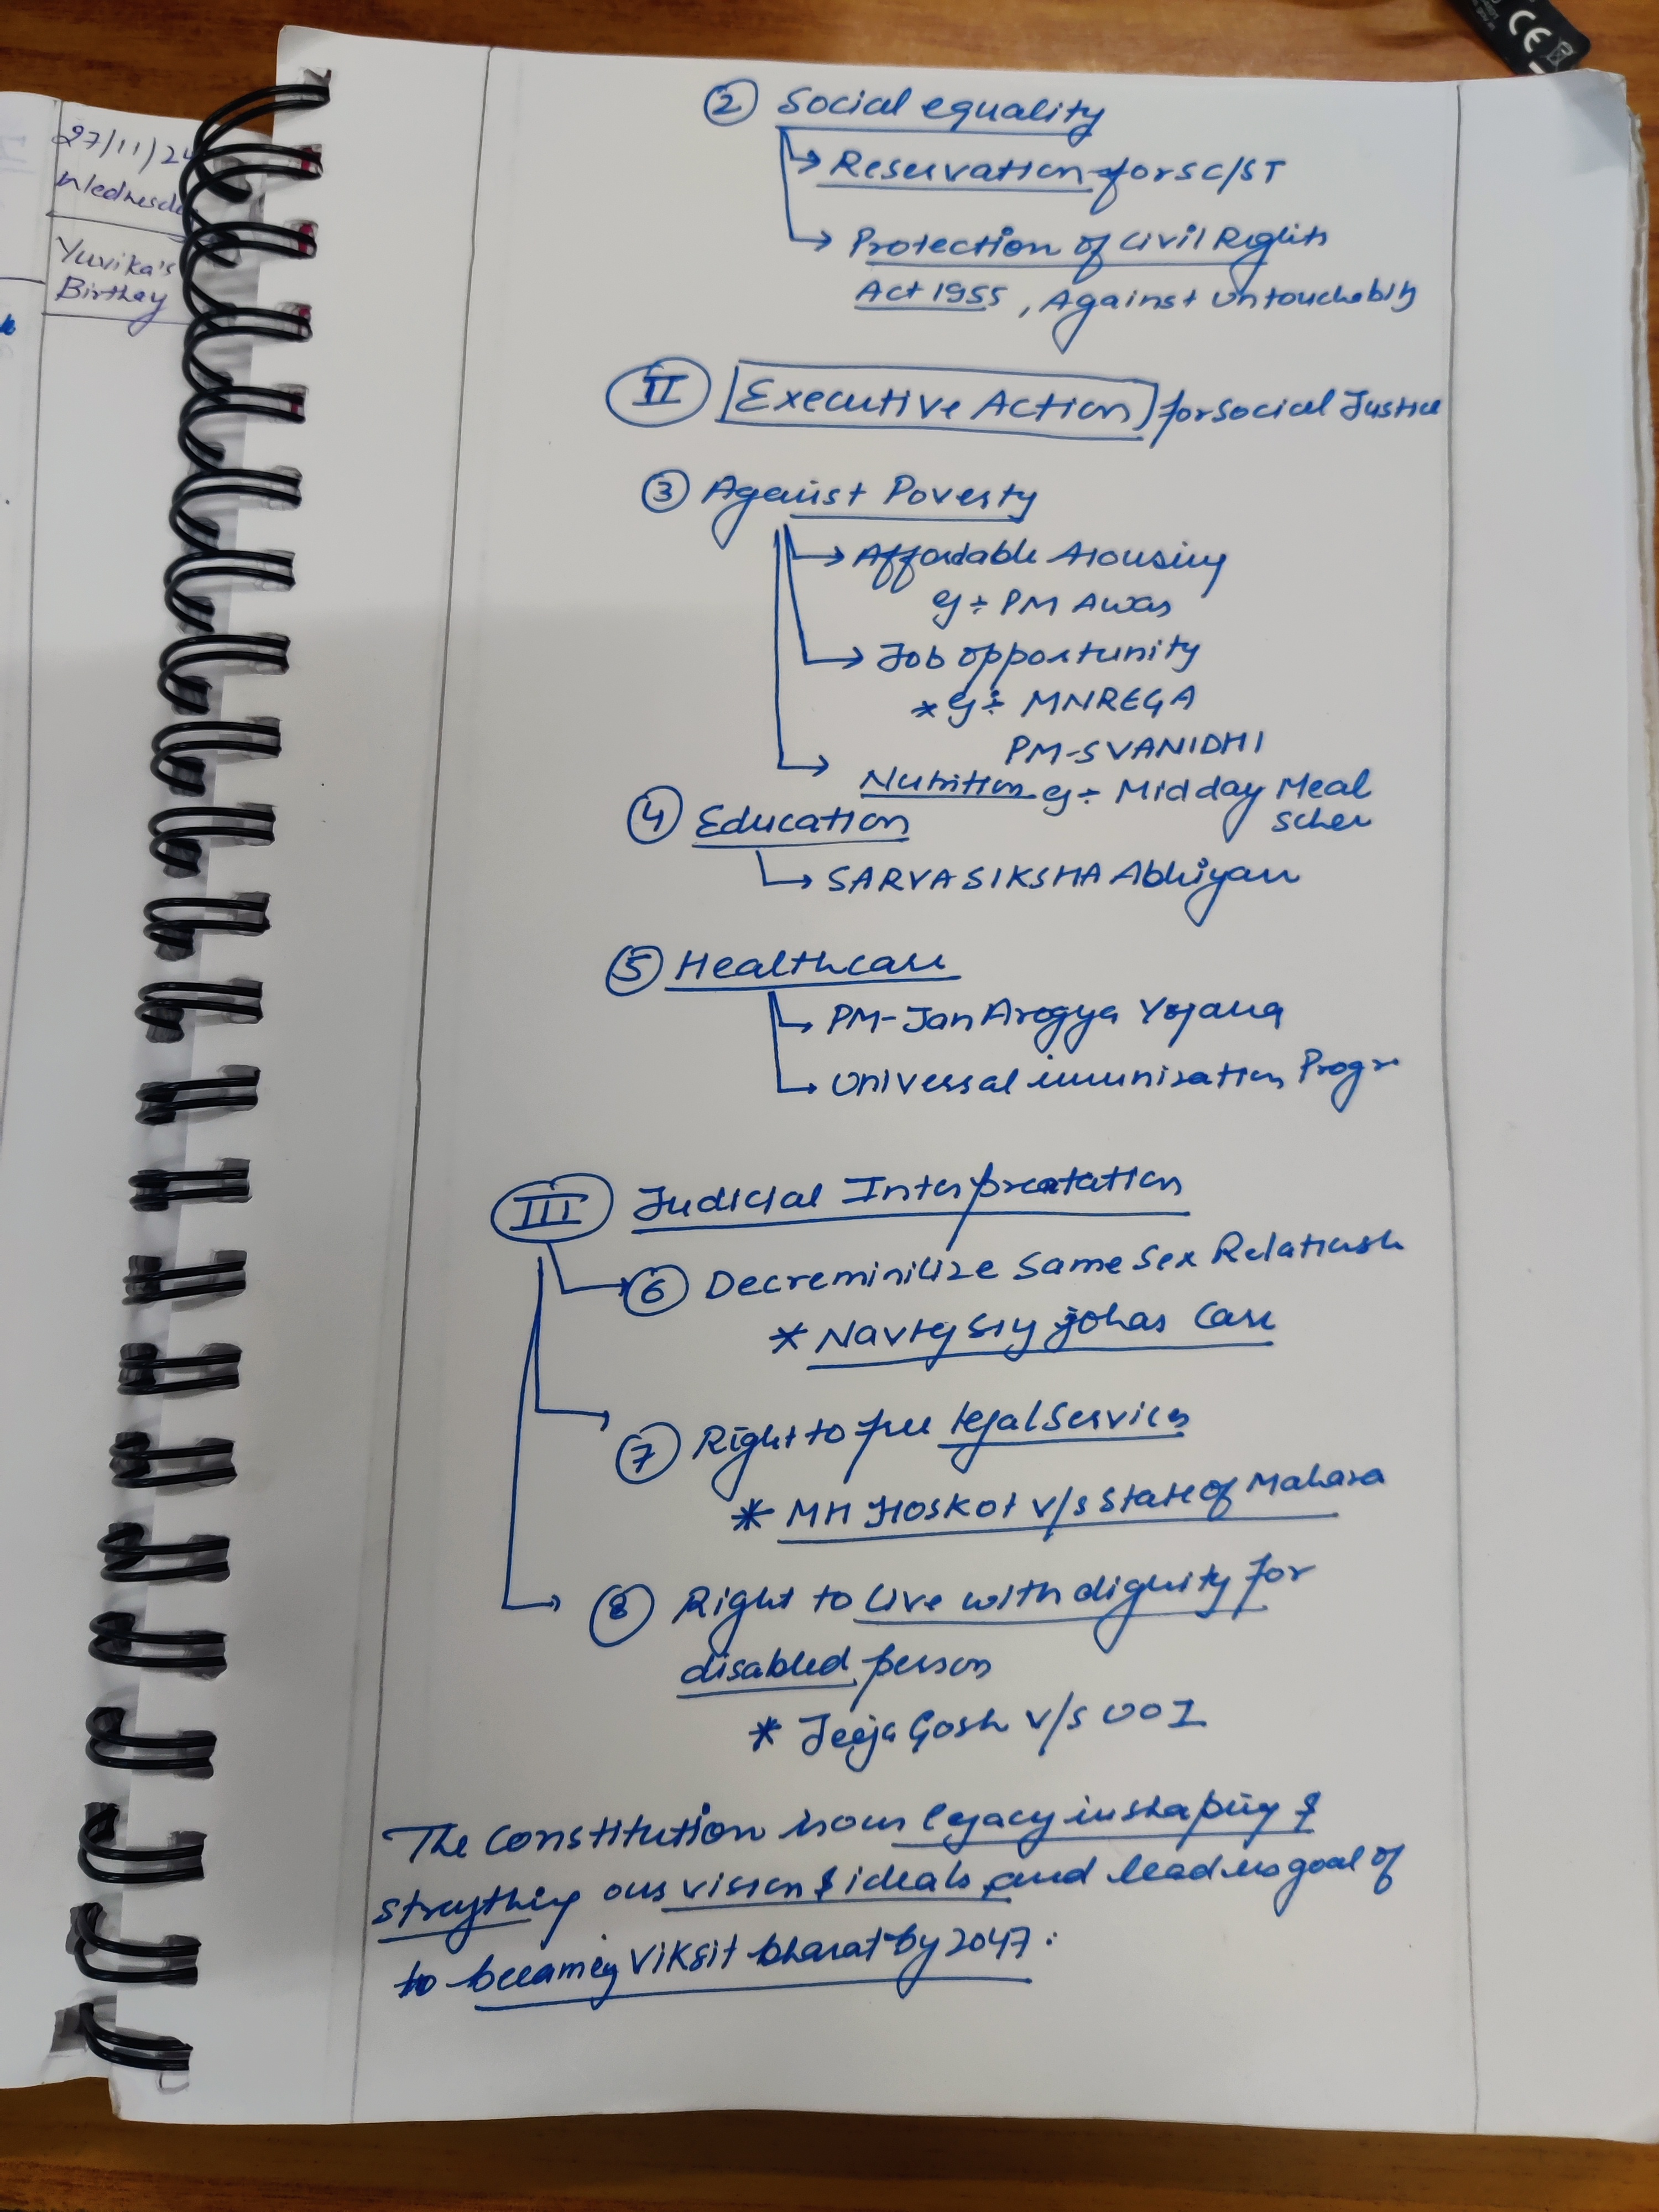 27/11/24
Wednesda
Yuvika's
Birthay
CE
② Social equality
Reservation for SC/ST
Protection of Civil Rights
Act 1955, Against Untouchability
II Executive Action for Social Justice
③ Against Poverty
Affordable Housing
eg ÷ PM Awas
Job opportunity
* eg ÷ MNREGA
PM-SVANIDHI
Nutrition eg ÷ Mid day Meal
Schem
④ Education
SARVA SIKSHA Abhiyan
⑤ Healthcare
PM-Jan Arogya Yojana
Universal immunization Progr
III Judicial Interpreatation
⑥ Decreminilize Same Sex Relationsh
* Navtej Singh johas Case
⑦ Right to free legal Services
* MH Hoskot v/s State of Mahara
⑧ Right to live with dignity for
disabled person
* Jeeja Gosh v/s UOI
The Constitution is our legacy in shaping &
strengthing our vision & ideals and lead us goal of
to becaming Viksit bharat by 2047.